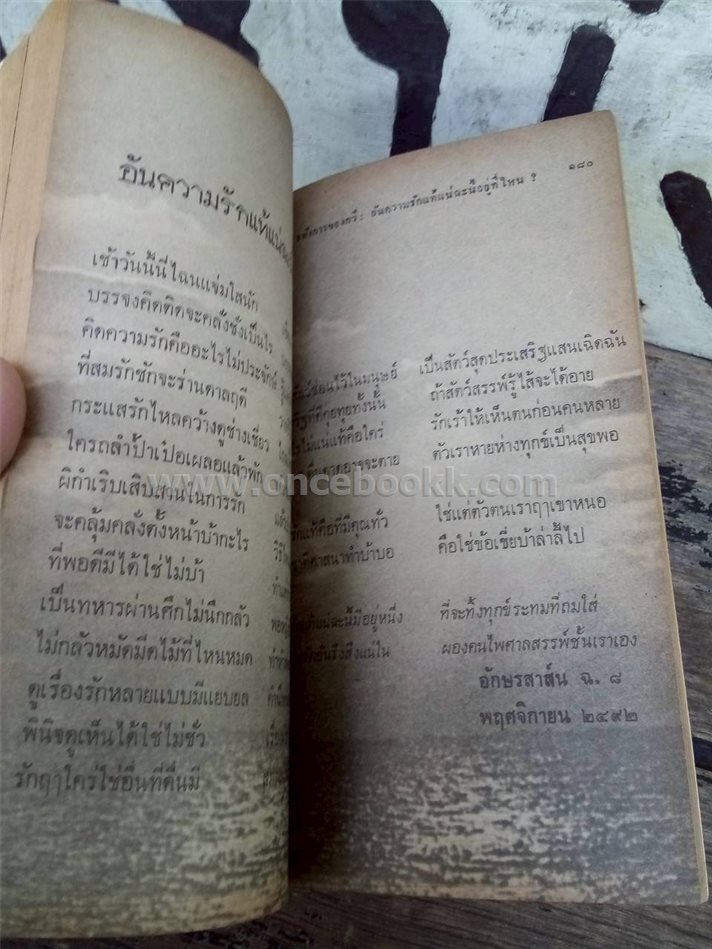 อันความรักแท้แน่
เช้าวันนี้นี่ไฉนแจ่มใสนัก
บรรจงคิดติดจะคลั่งชั่งเป็นไร
คิดความรักคืออะไรไม่ประจักษ์
ที่สมรักชักจะร่านดาลฤดี
กระแสรักไหลคว้างดูช่างเชี่ยว
ใครถลำป้ำเป๋อเผลอแล้วพัก
ผิกำเริบเสิบสานในการรัก
จะคลุ้มคลั่งตั้งหน้าบ้ากะไร
ที่พอดีมีได้ใช่ไม่บ้า
เป็นทหารผ่านศึกไม่นึกกลัว
ไม่กลัวหมัดมีดไม้ที่ไหนหมด
ดูเรื่องรักหลายแบบมีแยบยล
พินิจดูเห็นได้ใช่ไม่ชั่ว
รักฤๅใคร่ใช่อื่นที่ดื่นมี
๑๘๐
ของกวี : อันความรักแท้แน่ฉะนี้อยู่ที่ไหน ?
ซ่อนไว้ในมนุษย์ เป็นสัตว์สุดประเสริฐแสนเฉิดฉัน
ที่ดีคุยทุยทั้งนั้น ถ้าสัตว์สรรพ์รู้ไส้จะได้อาย
ไม่แน่แท้คือใคร่ รักเร้าให้เห็นตนก่อนคนหลาย
อาจจะตาย ตัวเราหายห่างทุกข์เป็นสุขพอ
รักแท้คือที่มีคุณทั่ว ใช่แต่ตัวตนเราฤๅเขาหนอ
ศาสนาทำบ้าบอ คือใช่ข้อเขี่ยบ้าล่าลี้ไป
แท้แน่ฉะนี้มีอยู่หนึ่ง ที่จะทิ้งทุกข์ระทมที่ถมใส่
ยันรึงสึงแน่ใน ผองคนไพศาลสรรพ์ชั้นเราเอง
อักษรสาส์น ฉ. ๘
พฤศจิกายน ๒๔๙๒
www.oncebookk.com